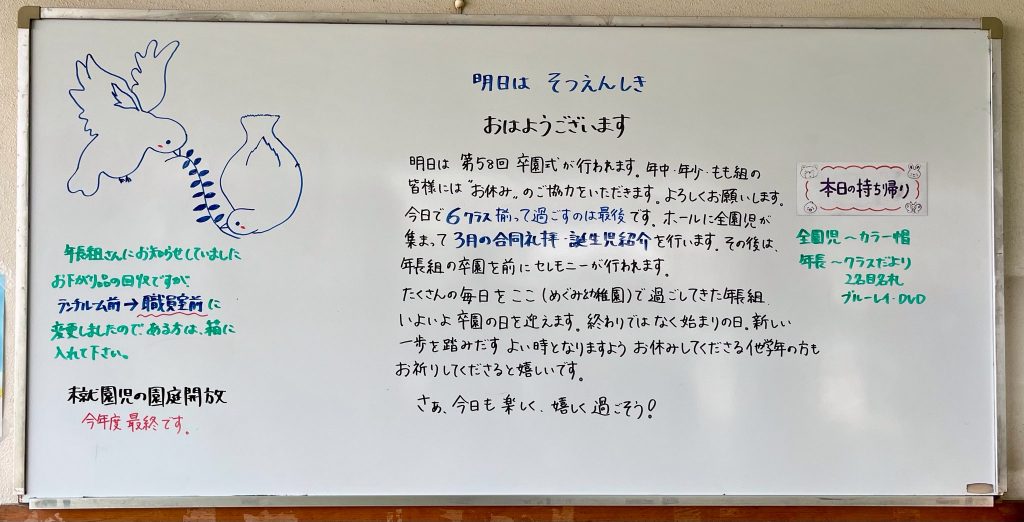 明日は そつえんしき
おはようございます
明日は 第58回 卒園式が行われます。年中・年少・もも組の
皆様には"お休み"のご協力をいただきます。よろしくお願いします。
今日で6クラス揃って過ごすのは最後です。ホールに全園児が
集まって3月の合同礼拝・誕生児紹介を行います。その後は、
年長組の卒園を前にセレモニーが行われます。
たくさんの毎日をここ(めぐみ幼稚園)で過ごしてきた年長組
いよいよ卒園の日を迎えます。終わりではなく始まりの日。新しい
一歩を踏みだす よい時となりますよう お休みしてくださる他学年の方も
お祈りしてくださると嬉しいです。
さぁ、今日も楽しく、嬉しく過ごそう!
年長組さんにお知らせしていました
お下がり品の回収ですが
ランチルーム前→職員室前に
変更しましたので、ある方は、箱に
入れて下さい。
未就園児の園庭開放
今年度最終です。
本日の持ち帰り
全園児〜カラー帽
年長〜クラスだより
2名目名札
ブルーレイ・DVD